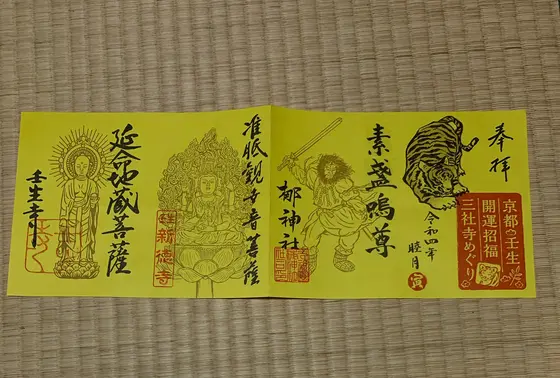 奉拝
京都壬生
開運招福
三社寺めぐり
令和四年
睦月
寅
素盞嗚尊
梛神社
准胝観世音菩薩
新徳寺
延命地蔵菩薩
壬生寺